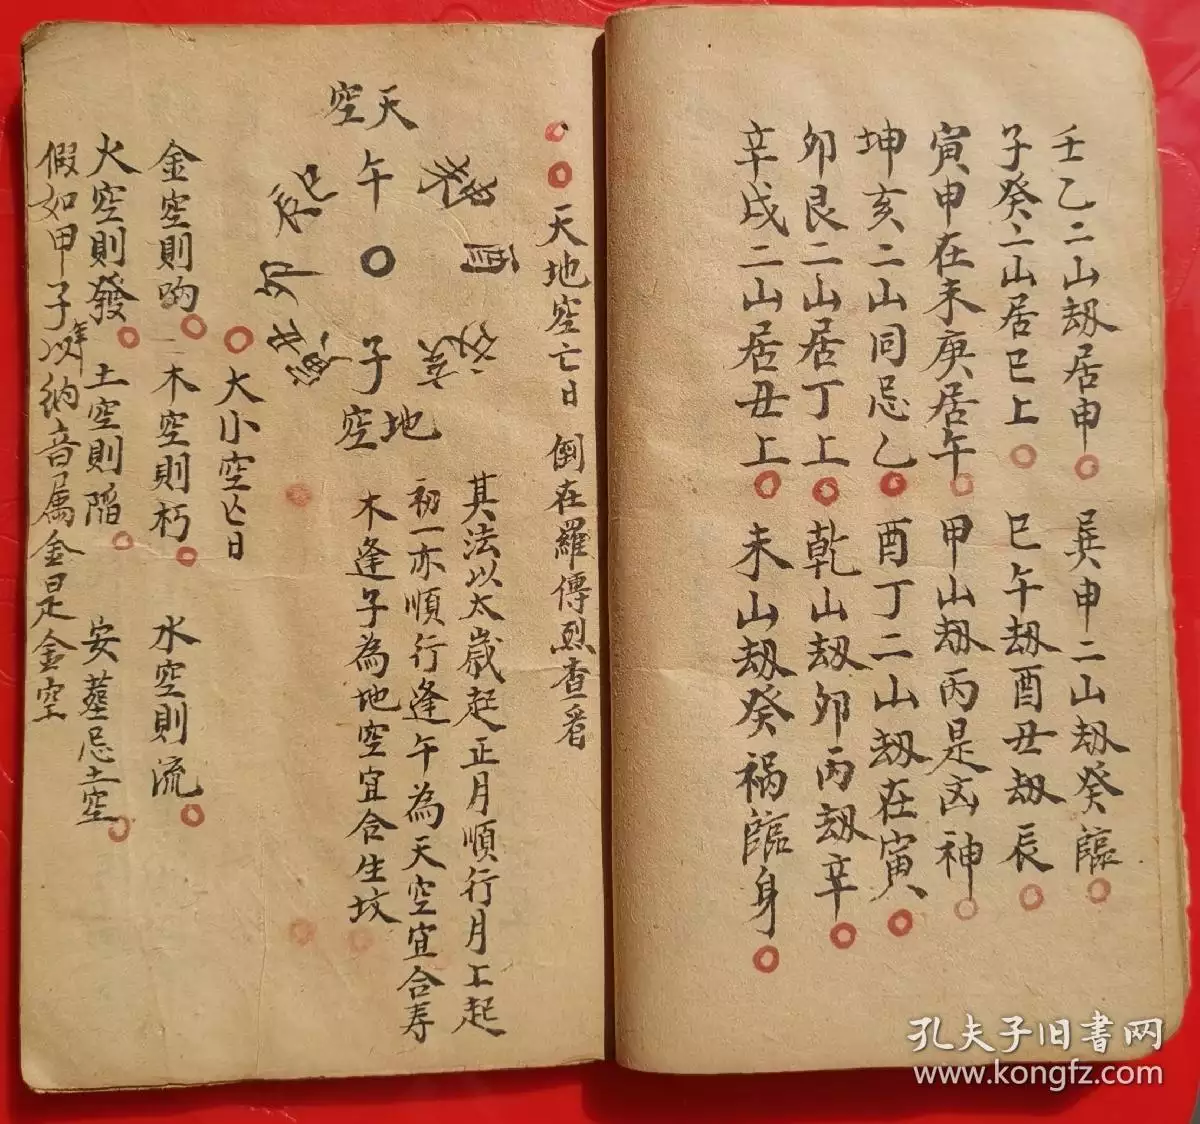 壬乙二山刼居申 巽申二山刼癸臨
子癸二山居巳上 巳午刼酉丑刼辰
寅申在未庚居午 甲山刼丙是凶神
坤亥二山同忌乙 酉丁二山刼在寅
卯艮二山居丁上 乾山刼卯丙刼辛
辛戌二山居丑上 未山刼癸祸臨身
天地空亡日 倒在羅傳烈查看
天空
午
酉
卯
辰巳
子
地空
其法以太歲起正月順行月上起
初一亦順行逢午為天空宜合寿
木逢子為地空宜合生坟
大小空亡日
金空則响 木空則朽 水空則流
火空則發 土空則陷 安葬忌土空
假如甲子年以納音属金是金空
孔夫子旧書网
www.kongfz.com